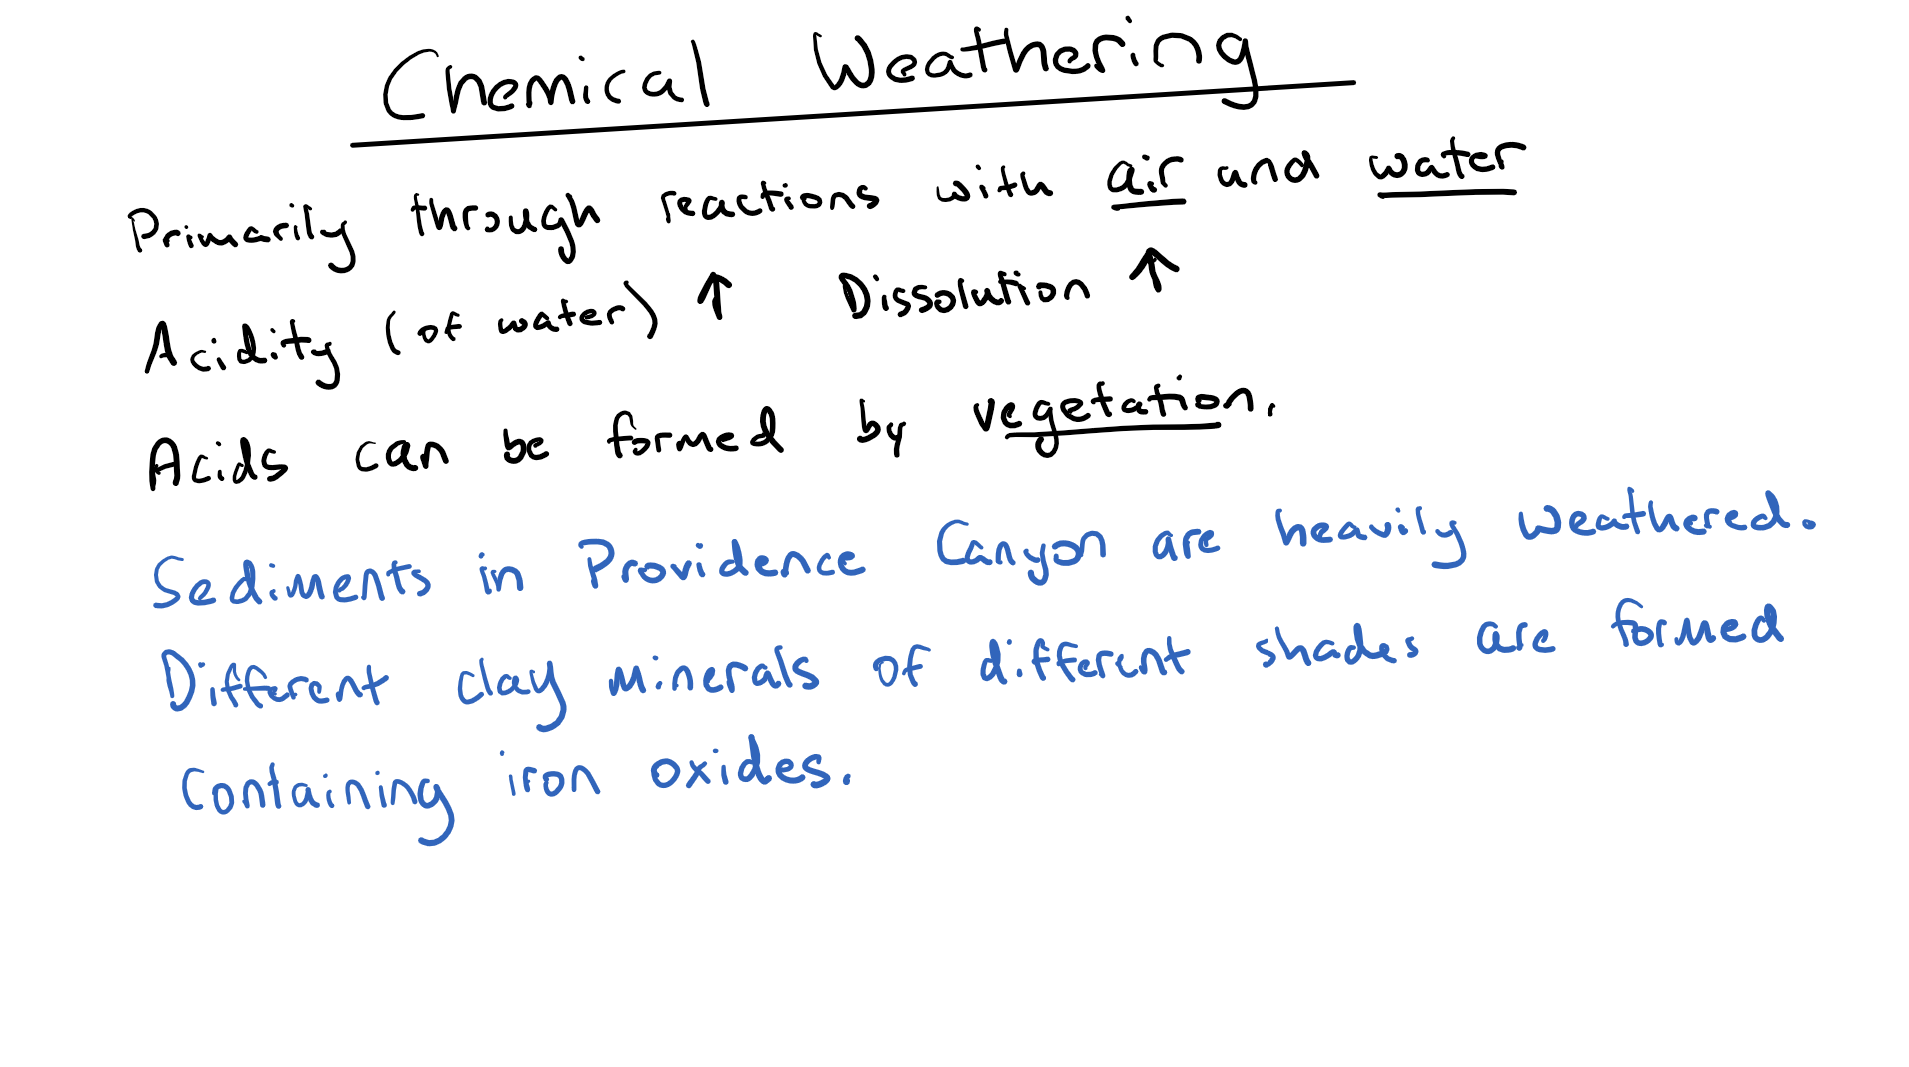 Chemical Weathering
Primarily through reactions with air and water
Acidity (of water) ↑ Dissolution ↑
Acids can be formed by vegetation.
Sediments in Providence Canyon are heavily weathered.
Different clay minerals of different shades are formed
containing iron oxides.